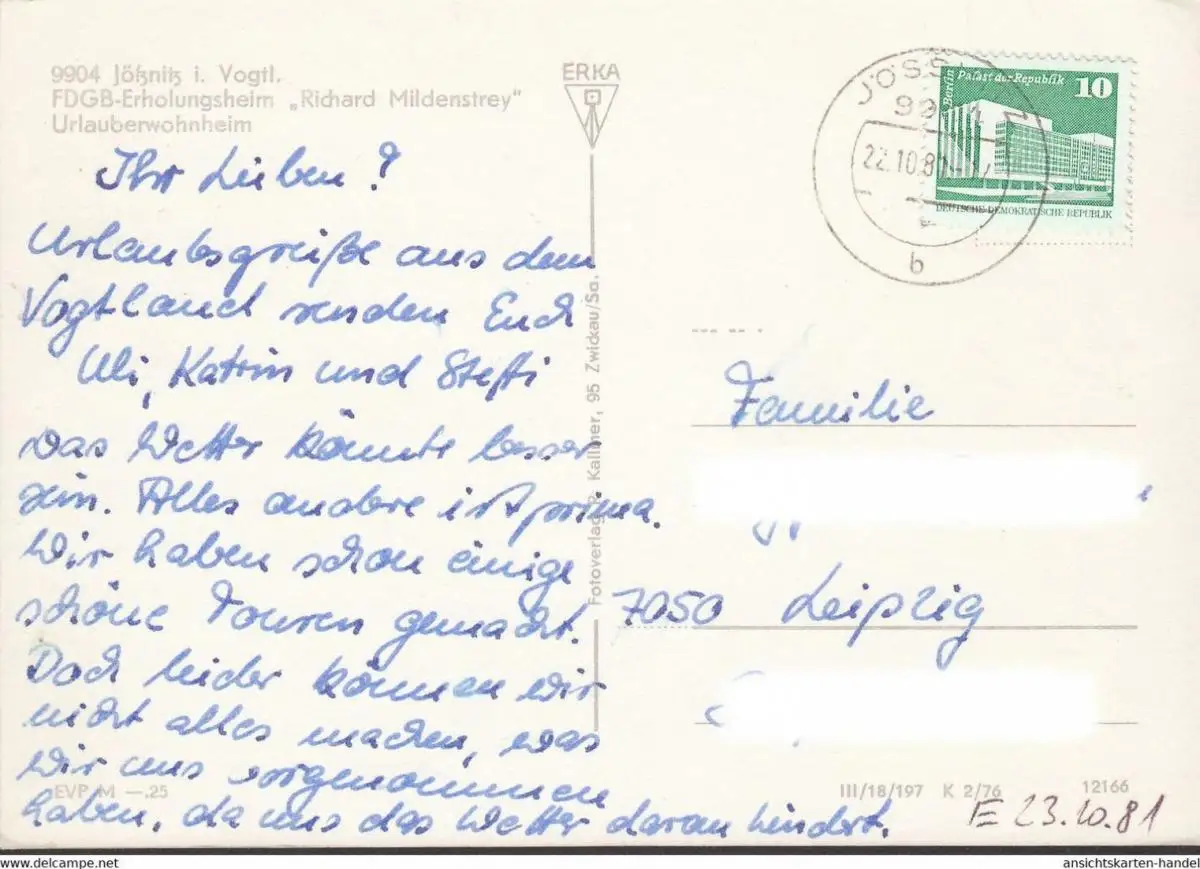 9904 Jößnitz i. Vogtl.
FDGB-Erholungsheim „Richard Mildenstrey"
Urlauberwohnheim
Ihr Lieben!
Urlaubsgrüße aus dem
Vogtland senden Euch
Uli, Katrin und Steffi
Das Wetter könnte besser
sein. Alles andere ist prima.
Wir haben schon einige
schöne Touren gemacht.
Doch leider können wir
nicht alles machen, was
wir uns vorgenommen
haben, da uns das Wetter daran hindert.
EVP M —.25
ERKA
Fotoverlag R. Kallmer, 95 Zwickau/Sa.
JÖSS
22.10.81
b
Berlin Palast der Republik 10
DEUTSCHE DEMOKRATISCHE REPUBLIK
Familie
7050 Leipzig
III/18/197 K 2/76 12166
E 23.10.81
www.ansichtskarten-handel.de
ansichtskarten-handel